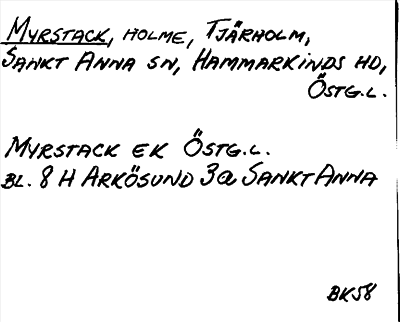 MYRSTACK, HOLME, TJÄRHOLM,
SANKT ANNA SN, HAMMARKINDS HD,
ÖSTG.L.
MYRSTACK EK ÖSTG.L.
BL. 8 H ARKÖSUND 3a SANKT ANNA
BK58